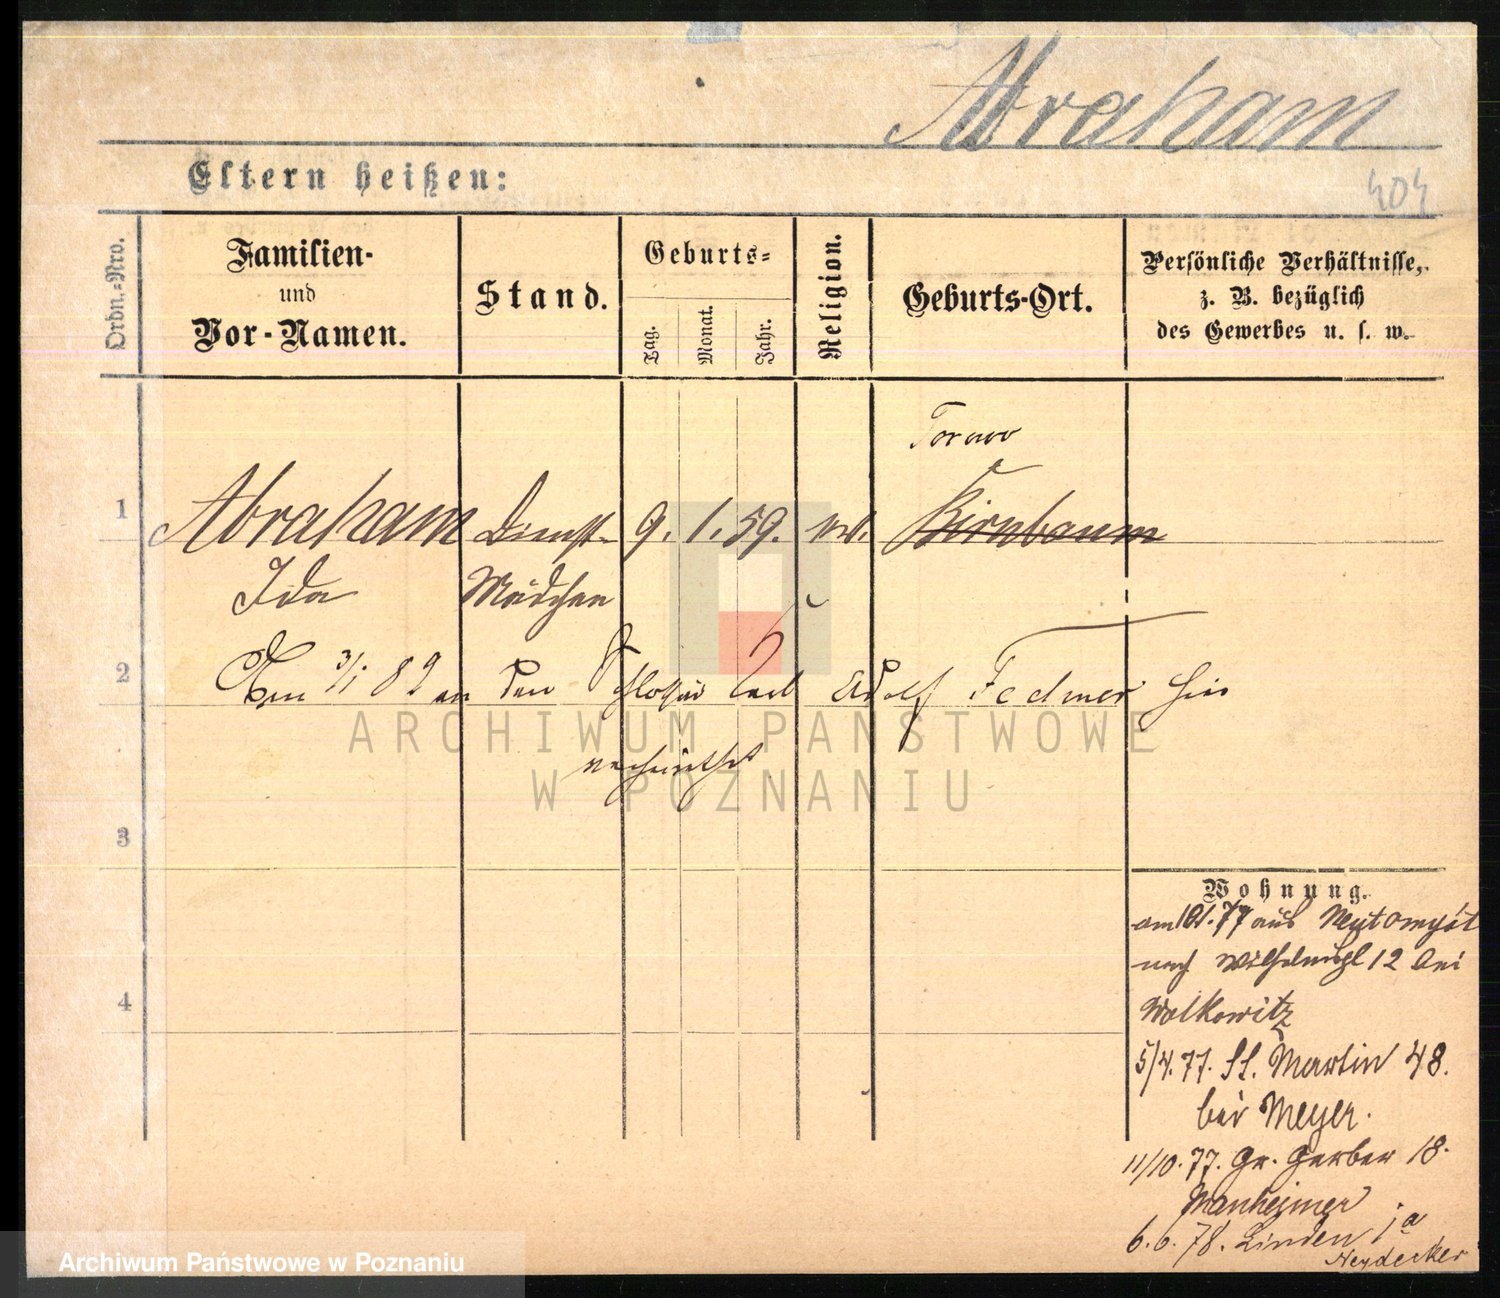 Abraham
Eltern heißen:
404
Ordn.-Nro.
Familien-
und
Vor-Namen.
Stand.
Geburts-
Tag.
Monat.
Jahr.
Religion.
Geburts-Ort.
Persönliche Verhältnisse,
z. B. bezüglich
des Gewerbes u. s. w.
Tornow
1 Abraham Dienst- 9. 1. 59. Birnbaum
Ida Mädchen
2 Den 3/1 82 an den Schlosser Carl Adolf Fechner hier
verheirathet
ARCHIWUM PAŃSTWOWE
W POZNANIU
3
Wohnung.
am 10/1.77 aus Neutomyśl
nach Wilhelmspl 12 bei
4 Wolkowitz
5/4.77. St. Martin 48.
bei Meyer.
11/10.77. Gr. Gerber 18.
Manheimer
6.6.78. Linden 1a
Heydecker
Archiwum Państwowe w Poznaniu